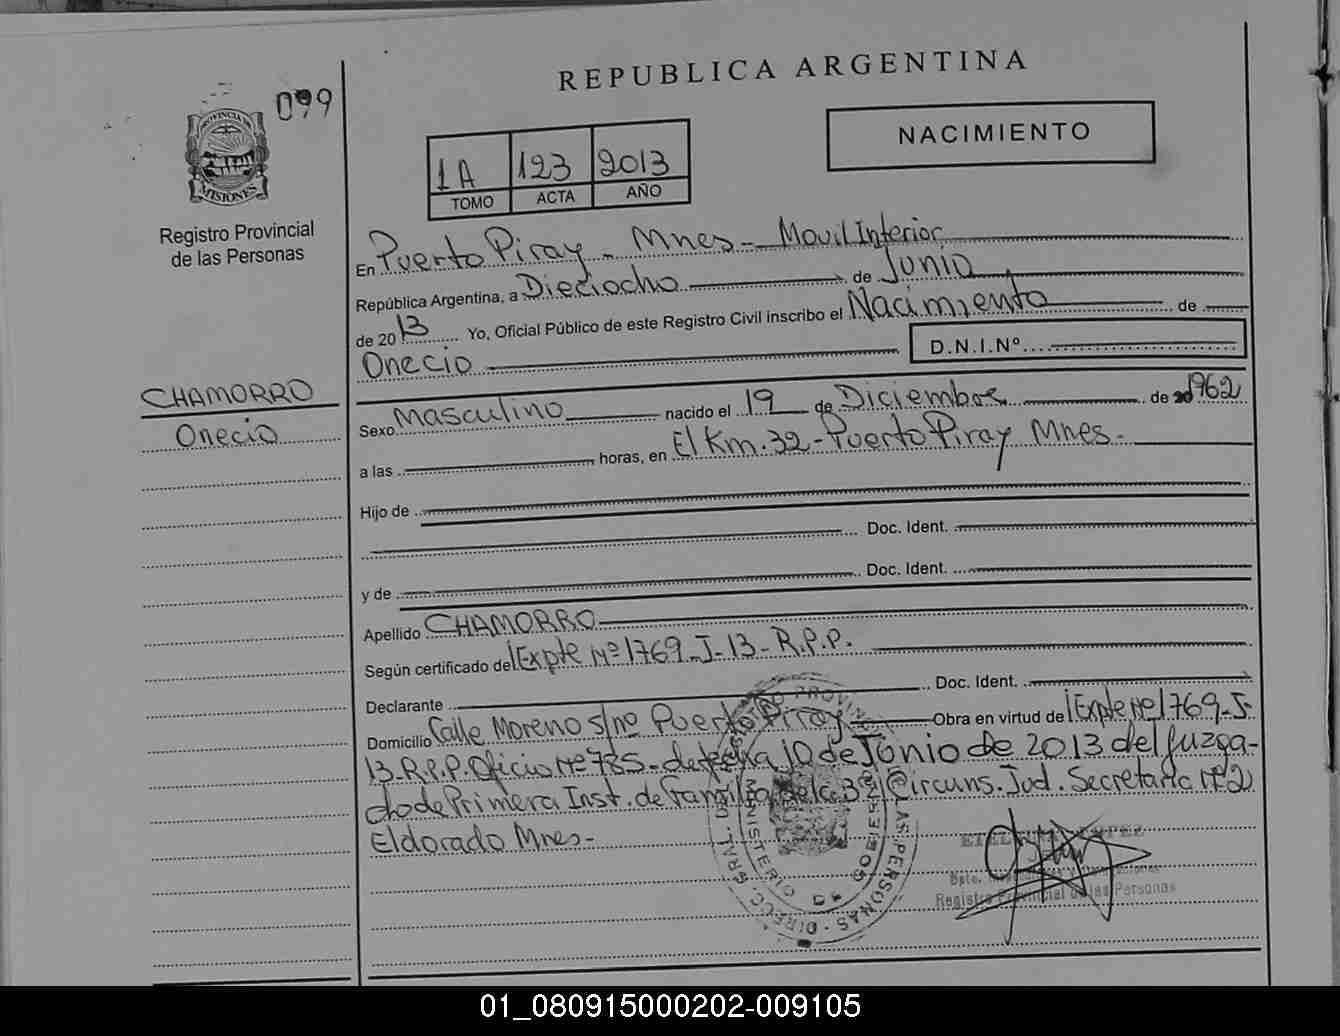 REPUBLICA ARGENTINA
099
PROVINCIA DE
MISIONES
Registro Provincial
de las Personas
NACIMIENTO
1A 123 2013
TOMO ACTA AÑO
En Puerto Piray - Mnes - Movil Interior
República Argentina, a Dieciocho de Junio
de 2013 Yo, Oficial Público de este Registro Civil inscribo el Nacimiento de
Onecio D.N.I.Nº
CHAMORRO
Onecio
Sexo Masculino nacido el 19 de Diciembre de 1962
a las horas, en El Km. 32 - Puerto Piray Mnes.
Hijo de
Doc. Ident.
y de Doc. Ident.
Apellido CHAMORRO
Según certificado del Expte Nº 1769-J-13-R.P.P.
Declarante Doc. Ident.
Domicilio Calle Moreno s/nº Puerto Piray Obra en virtud de Expte Nº 1769-J-
13-R.P.P. Oficio Nº 735 - de fecha 10 de Junio de 2013 del Juzga-
do de Primera Inst. de Familia de la 3ª Circuns. Jud. Secretaria Nº 2
Eldorado Mnes-
MINISTERIO DE GOBIERNO
LAS PERSONAS - DIRECC. GRAL.
Registro Provincial de las Personas
01_080915000202-009105